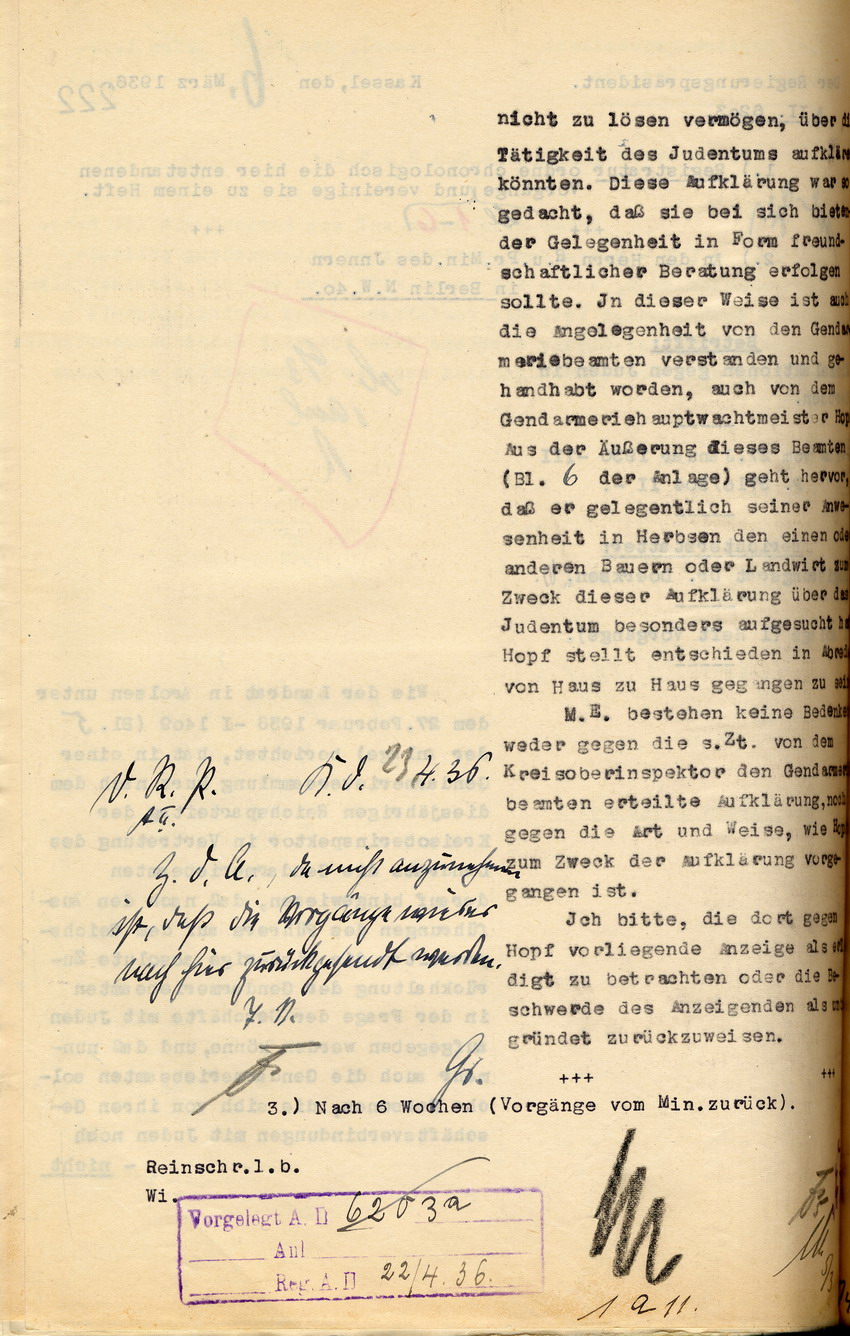 nicht zu lösen vermögen, über di
Tätigkeit des Judentums aufklär
könnten. Diese Aufklärung war so
gedacht, daß sie bei sich bieten
der Gelegenheit in Form freund-
schaftlicher Beratung erfolgen
sollte. Jn dieser Weise ist auch
die Angelegenheit von den Genda
meriebeamten verstanden und ge-
handhabt worden, auch von dem
Gendarmeriehauptwachtmeister Hop
Aus der Äußerung dieses Beamten
(Bl. 6 der Anlage) geht hervor,
daß er gelegentlich seiner Anwe-
senheit in Herbsen den einen ode
anderen Bauern oder Landwirt zum
Zweck dieser Aufklärung über das
Judentum besonders aufgesucht ha
Hopf stellt entschieden in Abred
von Haus zu Haus gegangen zu sei
M.E. bestehen keine Bedenke
weder gegen die s.Zt. von dem
Kreisoberinspektor den Gendarmer
beamten erteilte Aufklärung, noch
gegen die Art und Weise, wie Hop
zum Zweck der Aufklärung vorge-
gangen ist.
Jch bitte, die dort gegen
Hopf vorliegende Anzeige als erl
digt zu betrachten oder die Be-
schwerde des Anzeigenden als un
gründet zurückzuweisen.
+++ +++
3.) Nach 6 Wochen (Vorgänge vom Min.zurück).
Reinschr.l.b.
Wi.
V. R. P. K. d. 23 4. 36.
Z. d. A., da nicht anzunehmen
ist, daß die Vorgänge wieder
nach hier zurückgesandt werden.
J. V.
Gs.
Vorgelegt A. II 6263a
Anl
Reg. A. II 22/4. 36.